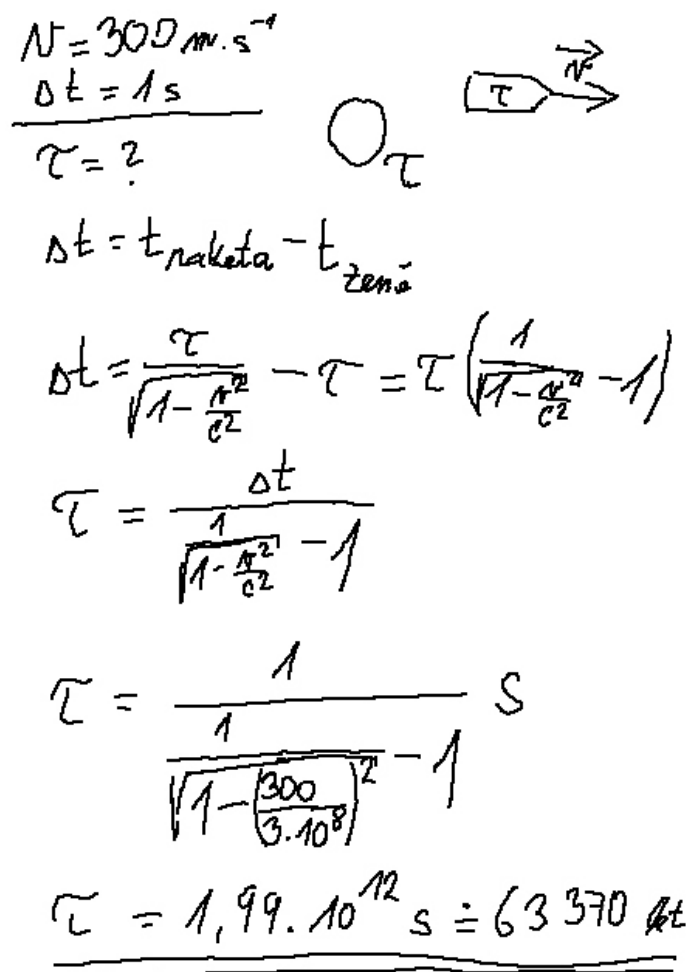 v = 300 m.s⁻¹
Δt = 1 s
τ = ?
τ
τ v⃗
Δt = t_raketa − t_země
Δt = τ / √(1 − v²/c²) − τ = τ (1 / √(1 − v²/c²) − 1)
τ = Δt / (1 / √(1 − v²/c²) − 1)
τ = 1 / (1 / √(1 − (300 / 3.10⁸)²) − 1) s
τ = 1,99.10¹² s ≐ 63 370 let